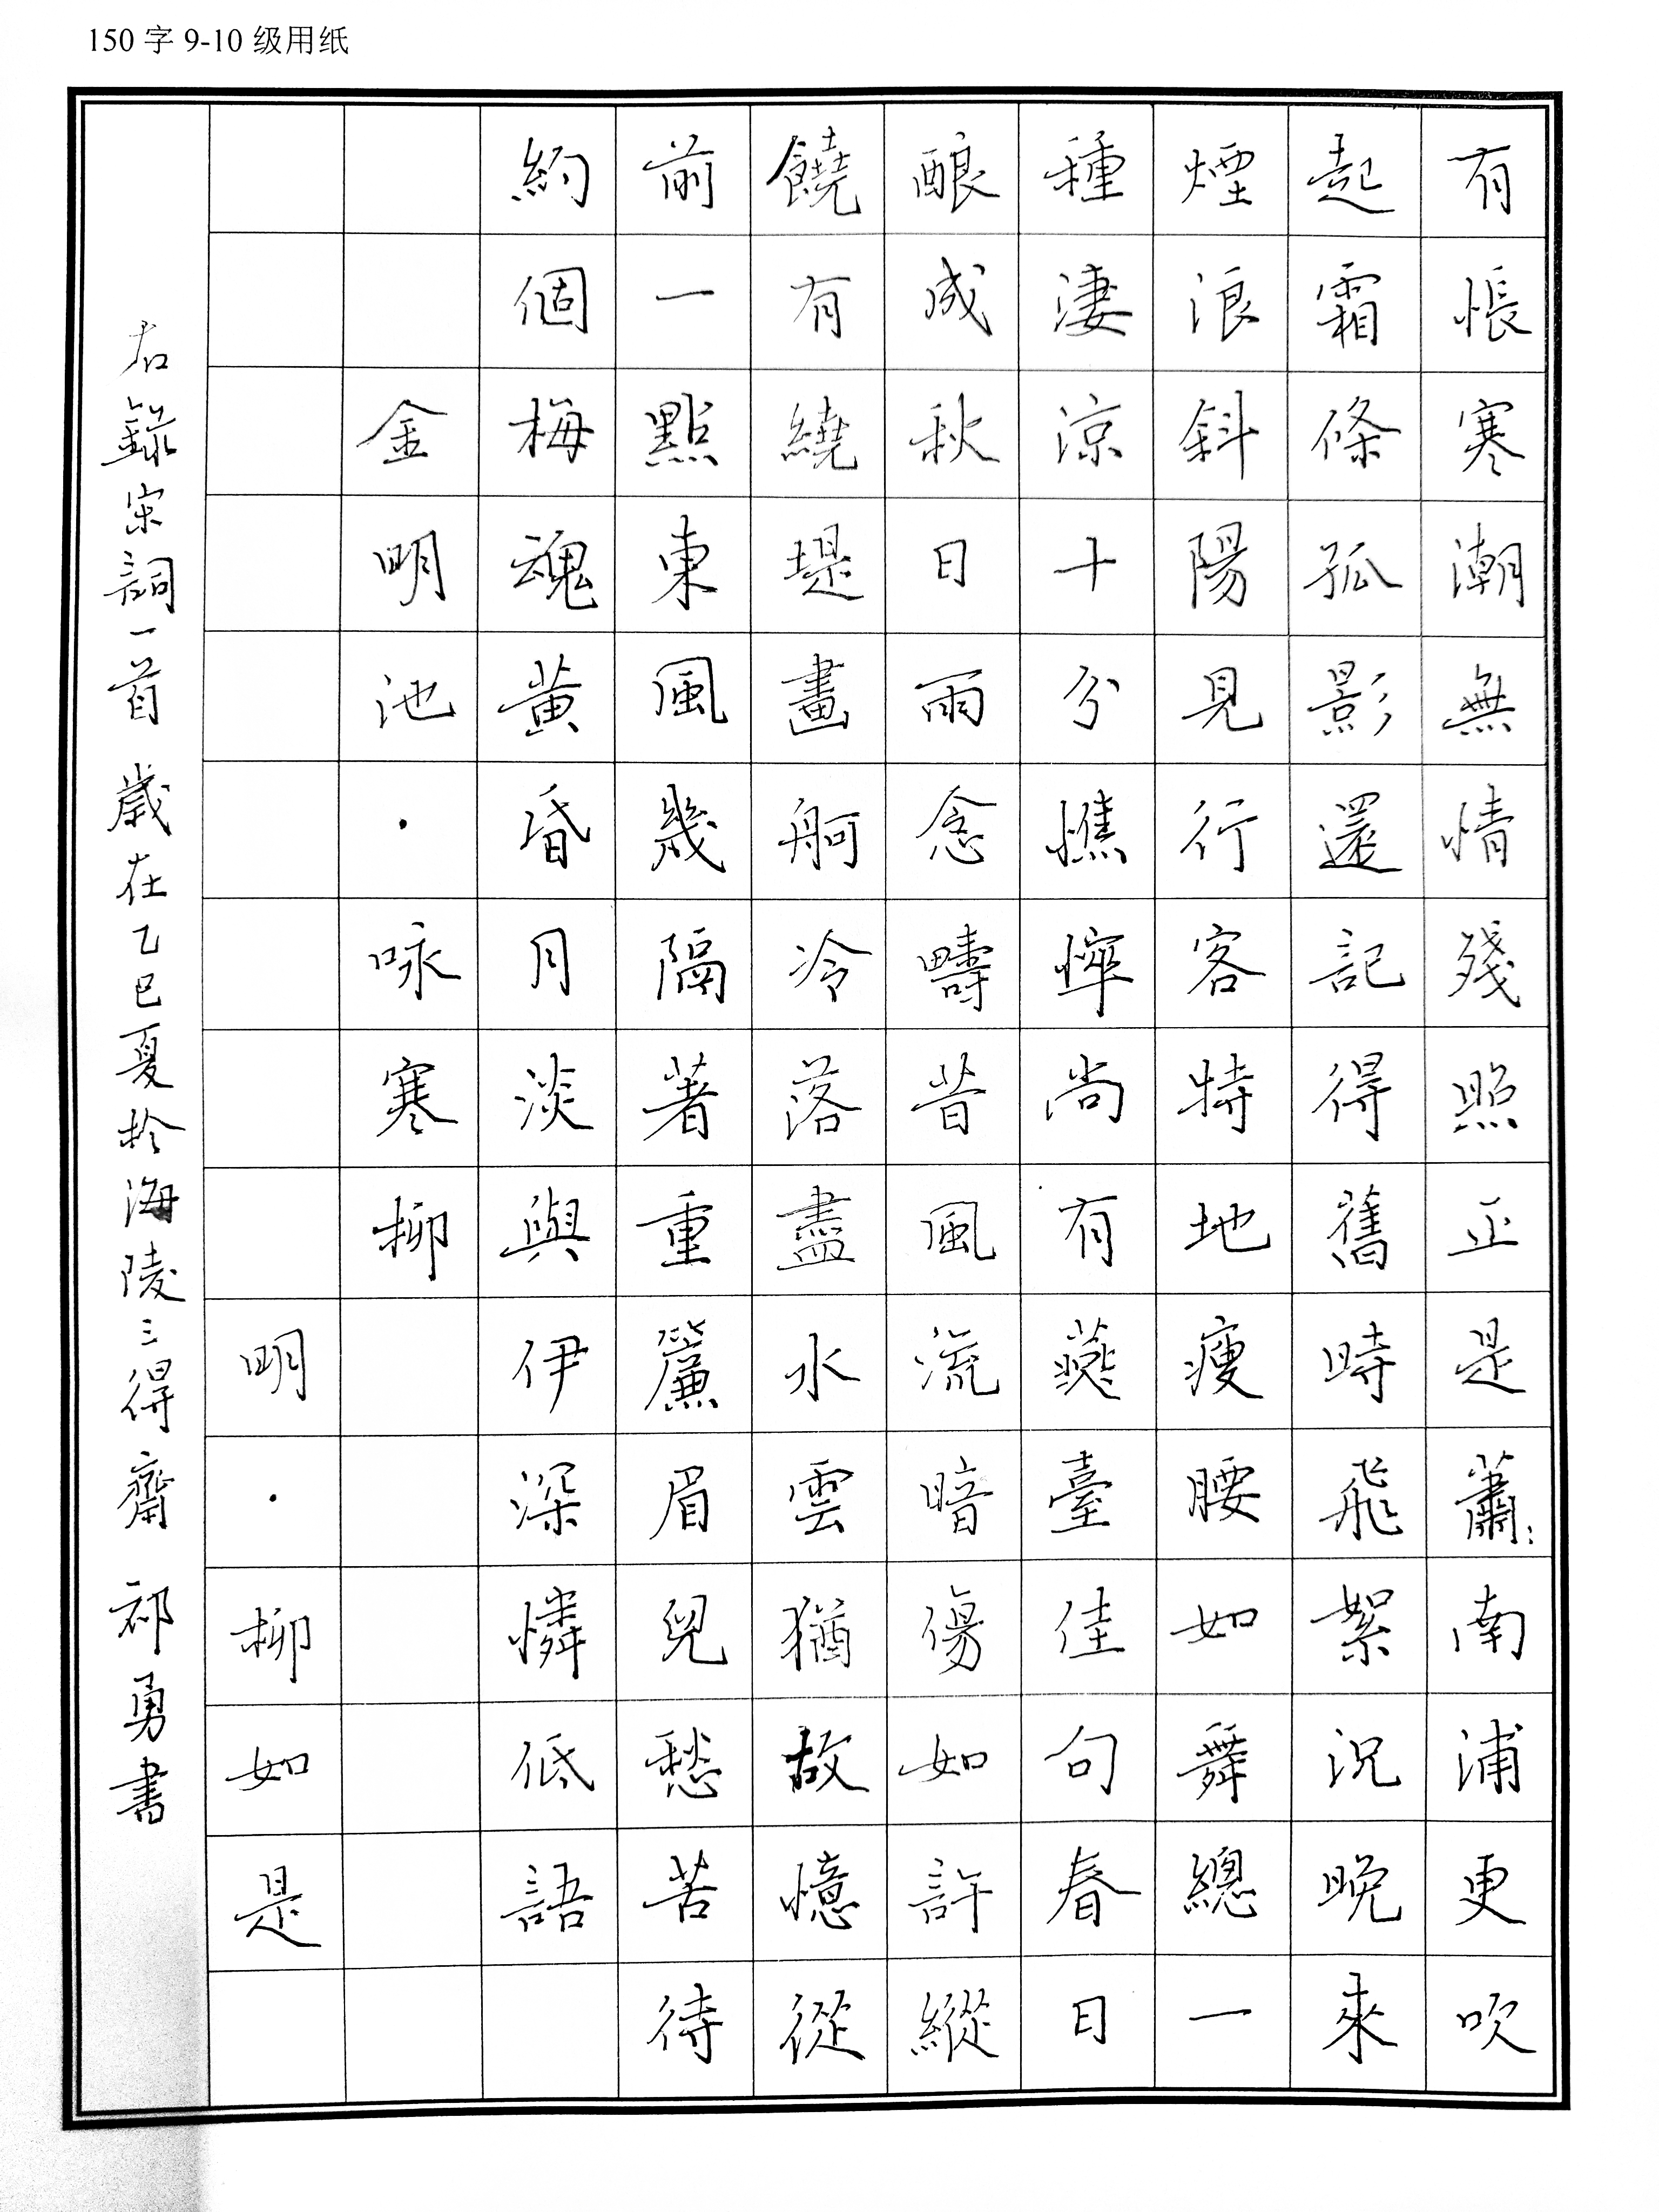 150字9-10级用纸
有悵寒潮無情殘照正是蕭:南浦更吹
起霜條孤影還記得舊時飛絮況晚來
煙浪斜陽見行客特地瘦腰如舞總一
種淒涼十分憔悴尚有燕臺佳句春日
釀成秋日雨念疇昔風流暗傷如許縱
饒有繞堤畫舸冷落盡水雲猶故憶從
前一點東風幾隔著重簾眉兒愁苦待
約個梅魂黃昏月淡與伊深憐低語
金明池·咏寒柳
明·柳如是
右錄宋詞一首 歲在乙巳夏於海陵三得齋 祁勇書